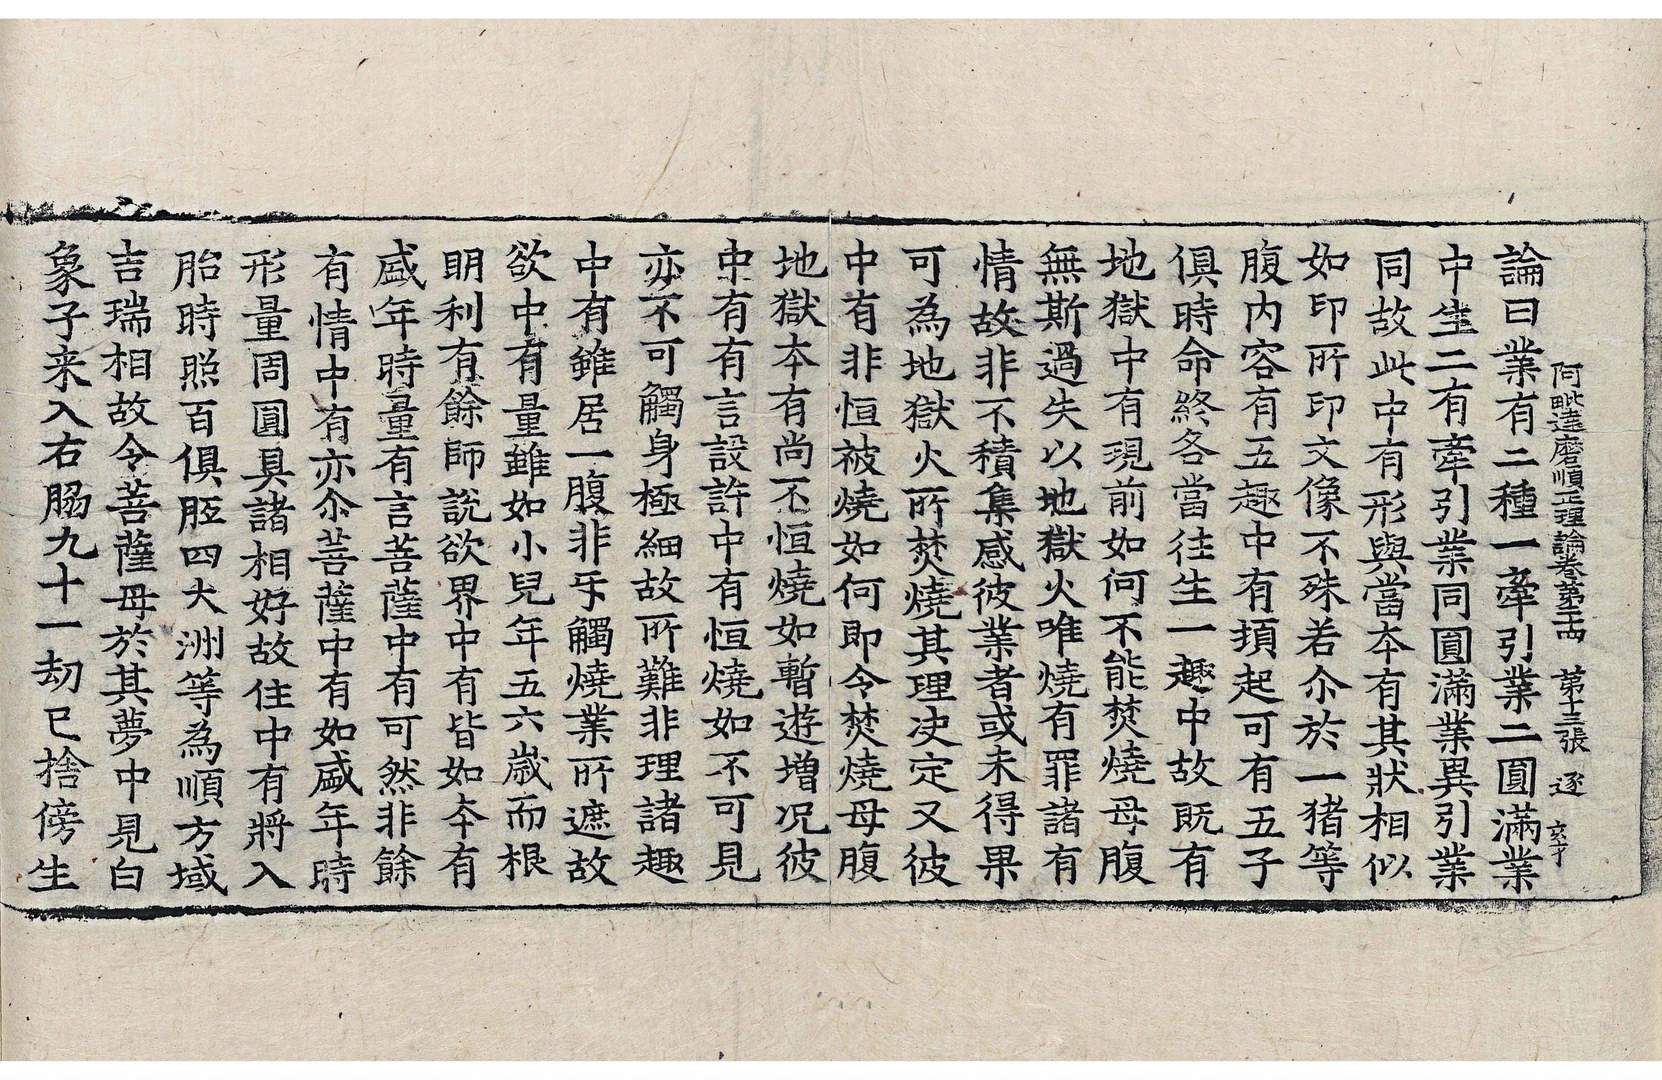 阿毗達磨順正理論卷第二十四　第十三張　逐
論曰業有二種一牽引業二圓滿業
中生二有牽引業同圓滿業異引業
同故此中有形與當本有其狀相似
如印所印文像不殊若尒於一猪等
腹内容有五趣中有頓起可有五子
俱時命終各當往生一趣中故既有
地獄中有現前如何不能焚燒母腹
無斯過失以地獄火唯燒有罪諸有
情故非不積集感彼業者或未得果
可為地獄火所焚燒其理决定又彼
中有非恒被燒如何即令焚燒母腹
地獄本有尚不恒燒如暫遊增况彼
中有有言設許中有恒燒如不可見
亦不可觸身極細故所難非理諸趣
中有雖居一腹非牙觸燒業所遮故
欲中有量雖如小兒年五六歲而根
明利有餘師說欲界中有皆如本有
盛年時量有言菩薩中有可然非餘
有情中有亦尒菩薩中有如盛年時
形量周圓具諸相好故住中有將入
胎時照百俱胝四大洲等為順方域
吉瑞相故令菩薩母於其夢中見白
象子来入右脇九十一劫已捨傍生